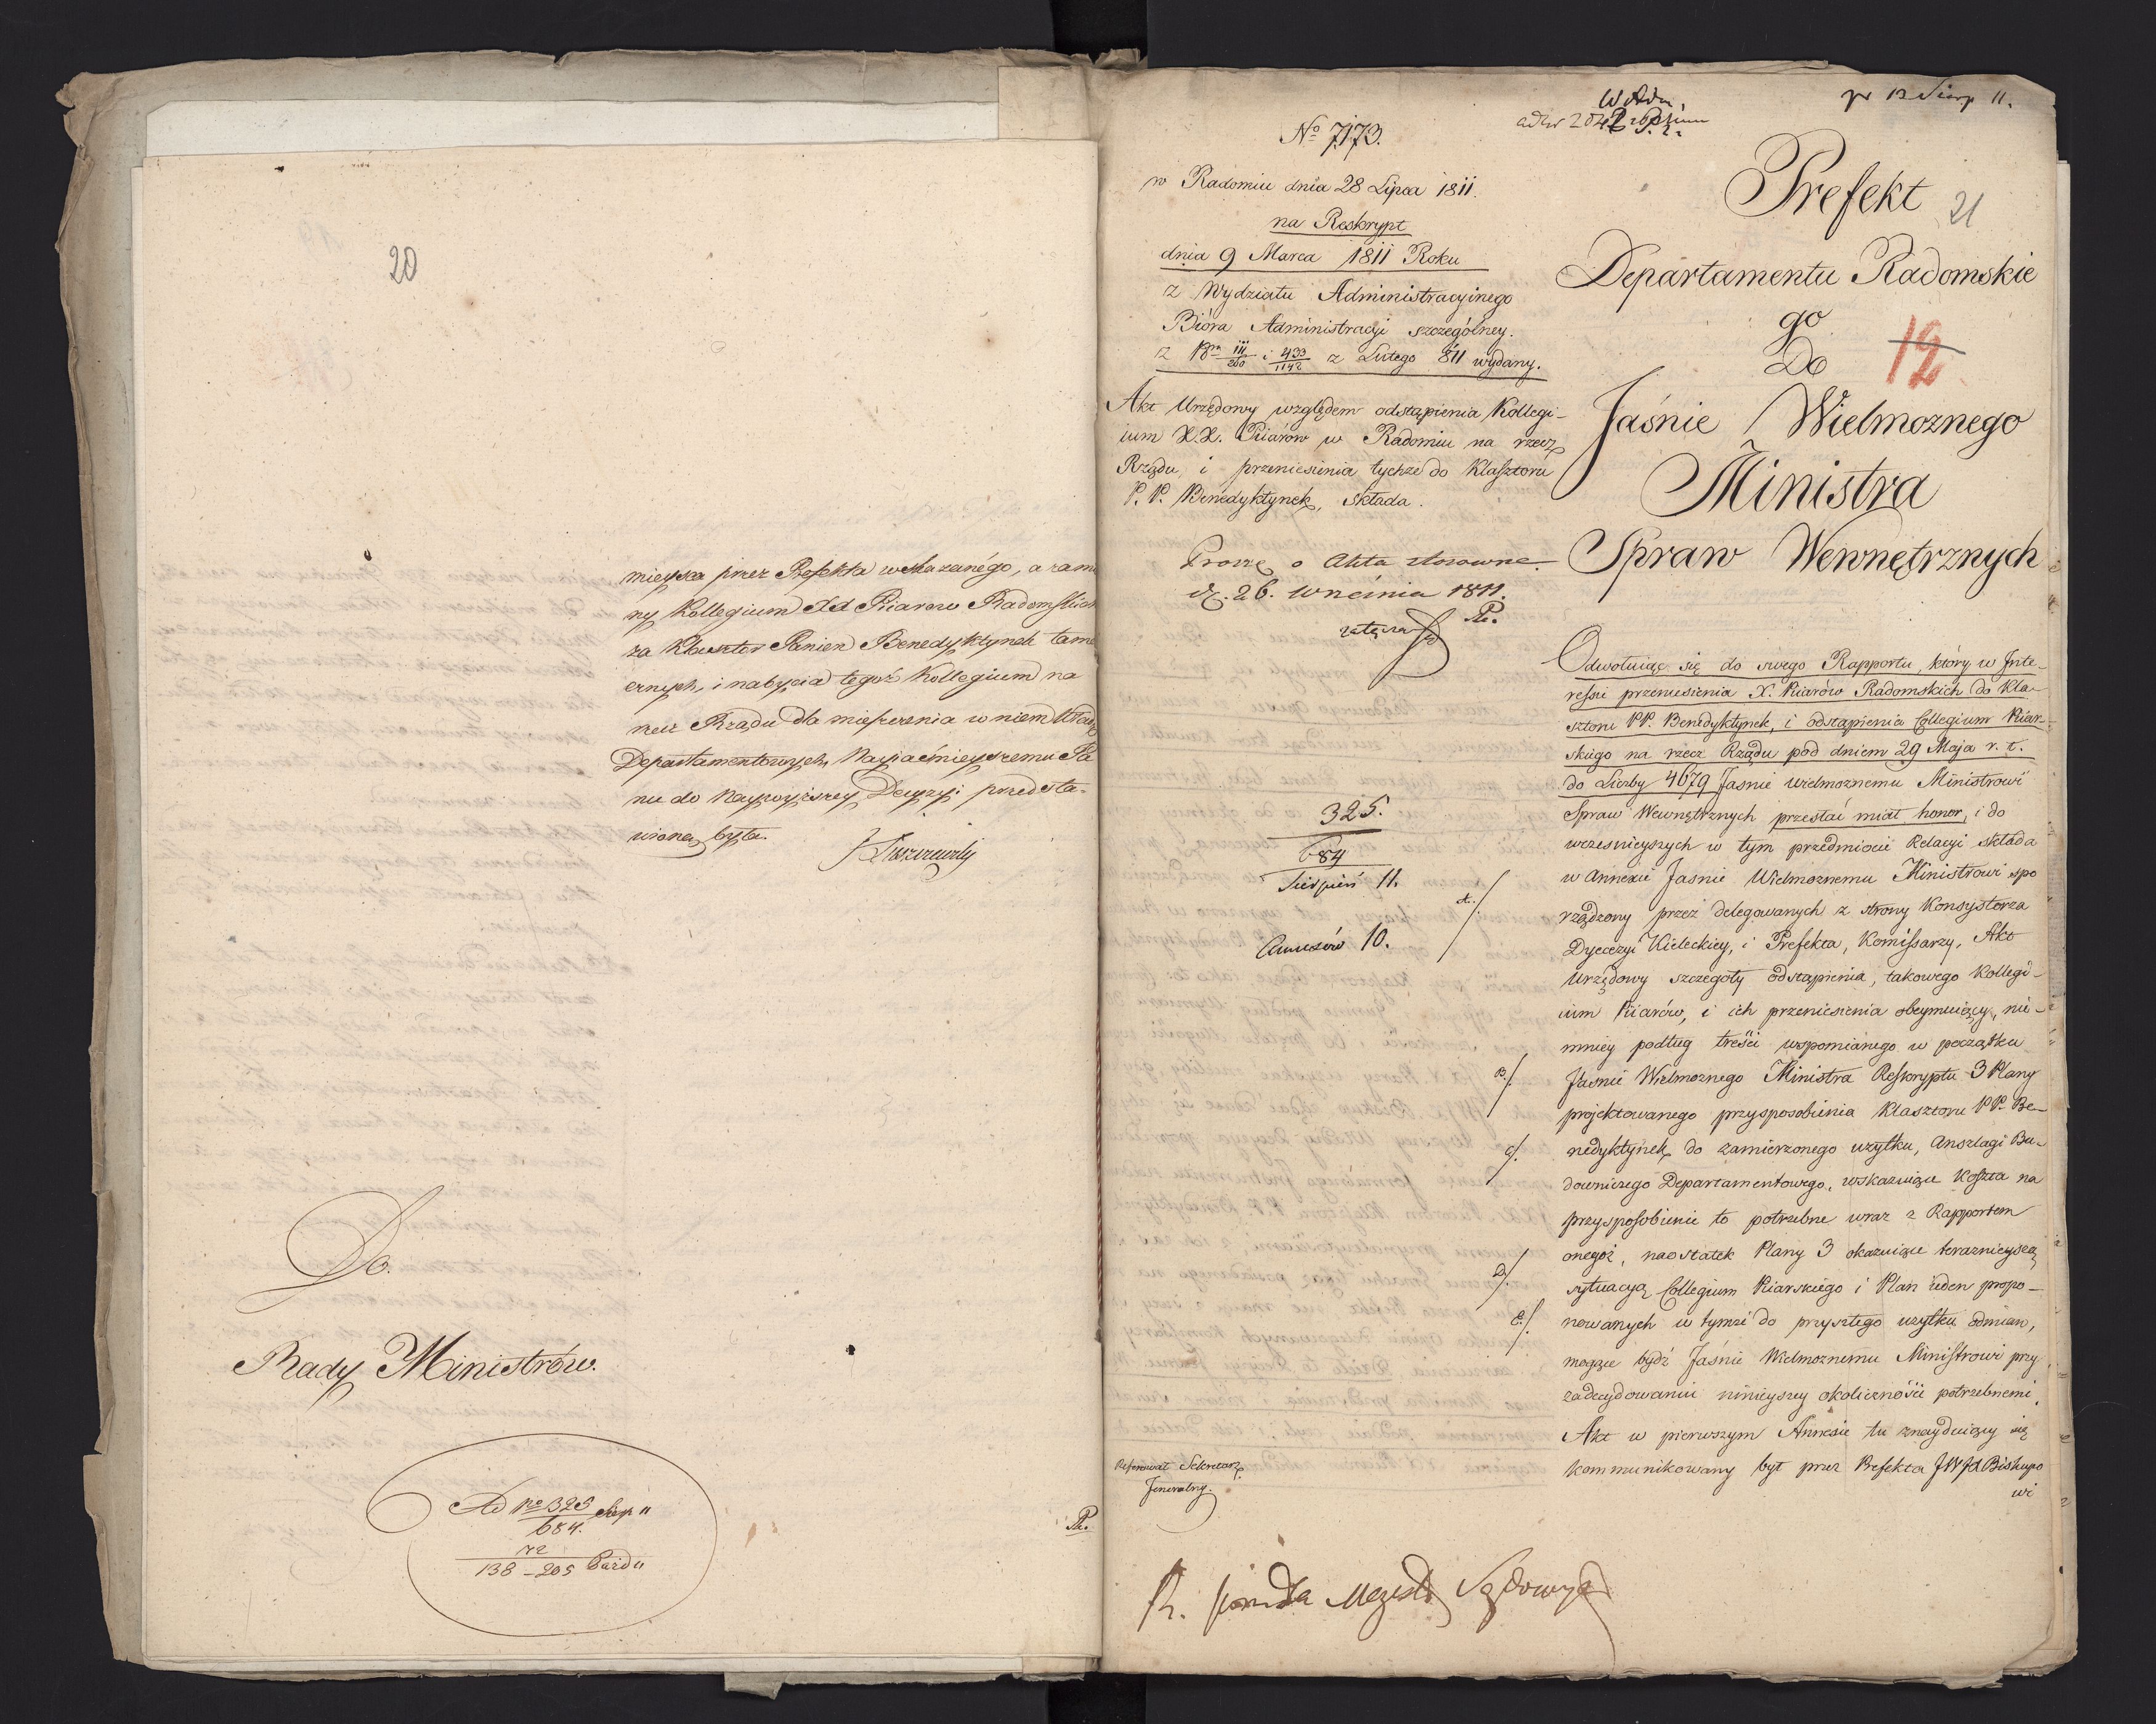 20
mieysca przez Prefekta wskazanego, a zamia
ny Kollegium XX Piarow Radomskich
za Klasztor Panien Benedyktynek tame
cznych, i nabycia tegoż Kollegium na
rzecz Rządu dla mieszczenia w niem Władz
Departamentowych, Nayiaśnieyszemu Pa
nu do Naywyższey Decyzyi przedsta-
wioną była.
Do.
Rady Ministrów.
Ad No 325 Sierp 11
684.
72
138 – 205
R.
No 7173.
w Radomiu dnia 28 Lipca 1811.
na Reskrypt
dnia 9 Marca 1811 Roku
z Wydziału Administracyinego
Bióra Administracyi szczególney.
z Nr 111/260 i 433/1142 z Lutego 811 wydany.
Akt Urzędowy względem odstąpienia Kollegi-
ium X.X. Piiarów w Radomiu na rzecz
Rządu, i przeniesienia tychże do Klasztoru
P.P. Benedyktynek, składa.
Proszę o Akta stosowne.
d. 26. Września 1811.
325.
684
Sierpień 11.
Annexów 10.
Referował Sekretarz
Jeneralny.
13 Sierp 11.
Prefekt
21
Departamentu Radomskie
go
Do
12
Jaśnie Wielmoznego
Ministra
Spraw Wewnętrznych
Odwołuiąc się do swego Rapportu, który w Inte-
ressie przeniesienia X. Piiarów Radomskich do Kla-
sztoru PP. Benedyktynek, i odstąpienia Collegium Piiar-
skiego na rzecz Rządu pod dniem 29 Maja r. t.
do Liczby 4679 Jaśnie Wielmoznemu Ministrowi
Spraw Wewnętrznych przesłać miał honor, i do
wcześnieyszych w tym przedmiocie Relacyi składa
A./. w Annexie Jaśnie Wielmoznemu Ministrowi spo
rządzony przez delegowanych z strony Konsystorza
Dyecezyi Kieleckiey, i Prefekta, Komissarzy, Akt
Urzędowy szczegóły odstąpienia, takowego Kollegi-
ium Piiarów, i ich przeniesienia obeymuiący, nie-
mniey podług treści wspomnianego w początku
B./. Jaśnie Wielmoznego Ministra Reskryptu 3 Plany
projektowanego przysposobienia Klasztoru PP. Be-
C/. nedyktynek do zamierzonego uzytku, Anszlagi Bu-
downiczego Departamentowego, wskazuiące Koszta na
przysposobienie to potrzebne wraz z Rapportem
D/. onegoż, naostatek Plany 3 okazuiące teraznieyszą
sytuacyą Collegium Piiarskiego i Plan ieden propo-
E./. nowanych w tymże do przyszłego uzytku odmian,
mogące bydź Jaśnie Wielmoznemu Ministrowi przy
zadecydowaniu ninieyszey okoliczności potrzebnemi.
Akt w pierwszym Annexie tu znayduiący się
kommunikowany był przez Prefekta JWJX Biskupo
wi